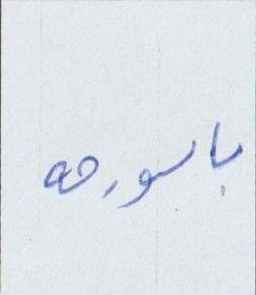 باسورحه